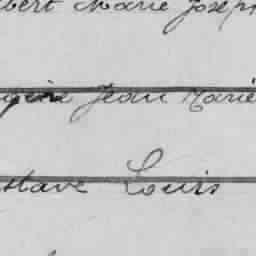 bert Marie Joseph
Jean Marie
stave Louis